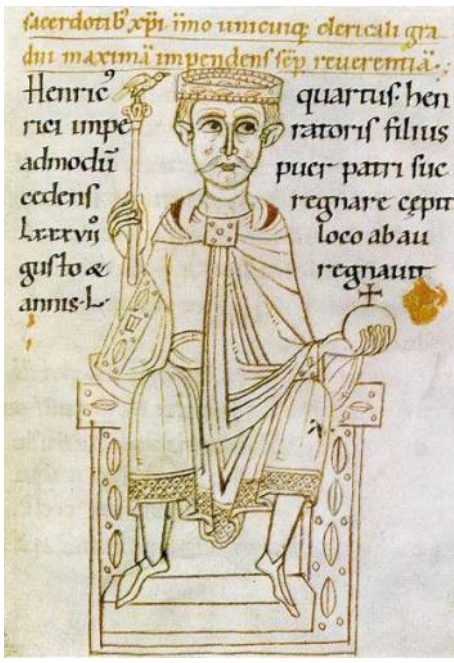 sacerdotib᾽ xp̄i īmo unicuiq; clericali gra
dui maximā impendens sēp reuerentiā.
Henric᾽ quartus. hen
rici impe ratoris filius
admodū puer patri suc
cedens regnare cępit
lxxxvii loco ab au
gusto & regnauit
annis. L.